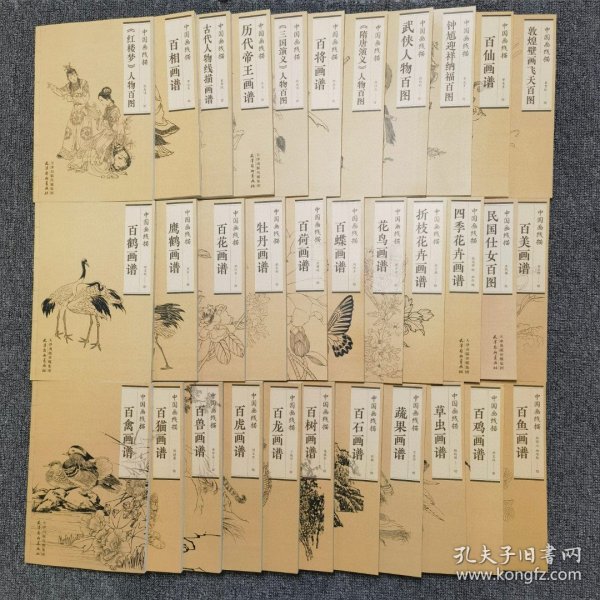 中国画线描
《红楼梦》人物百图
中国画线描
百相画谱
中国画线描
古代人物线描画谱
中国画线描
历代帝王画谱
中国画线描
《三国演义》人物百图
中国画线描
百将画谱
中国画线描
《隋唐演义》人物百图
中国画线描
武侠人物百图
中国画线描
钟馗迎祥纳福百图
中国画线描
百仙画谱
中国画线描
敦煌壁画飞天百图
中国画线描
百鹤画谱
中国画线描
鹰鹤画谱
中国画线描
百花画谱
中国画线描
牡丹画谱
中国画线描
百荷画谱
中国画线描
百蝶画谱
中国画线描
花鸟画谱
中国画线描
折枝花卉画谱
中国画线描
四季花卉画谱
中国画线描
民国仕女百图
中国画线描
百美画谱
中国画线描
百禽画谱
中国画线描
百猫画谱
中国画线描
百兽画谱
中国画线描
百虎画谱
中国画线描
百龙画谱
中国画线描
百树画谱
中国画线描
百石画谱
中国画线描
蔬果画谱
中国画线描
草虫画谱
中国画线描
百鸡画谱
中国画线描
百鱼画谱
孔夫子旧书网
www.kongfz.com